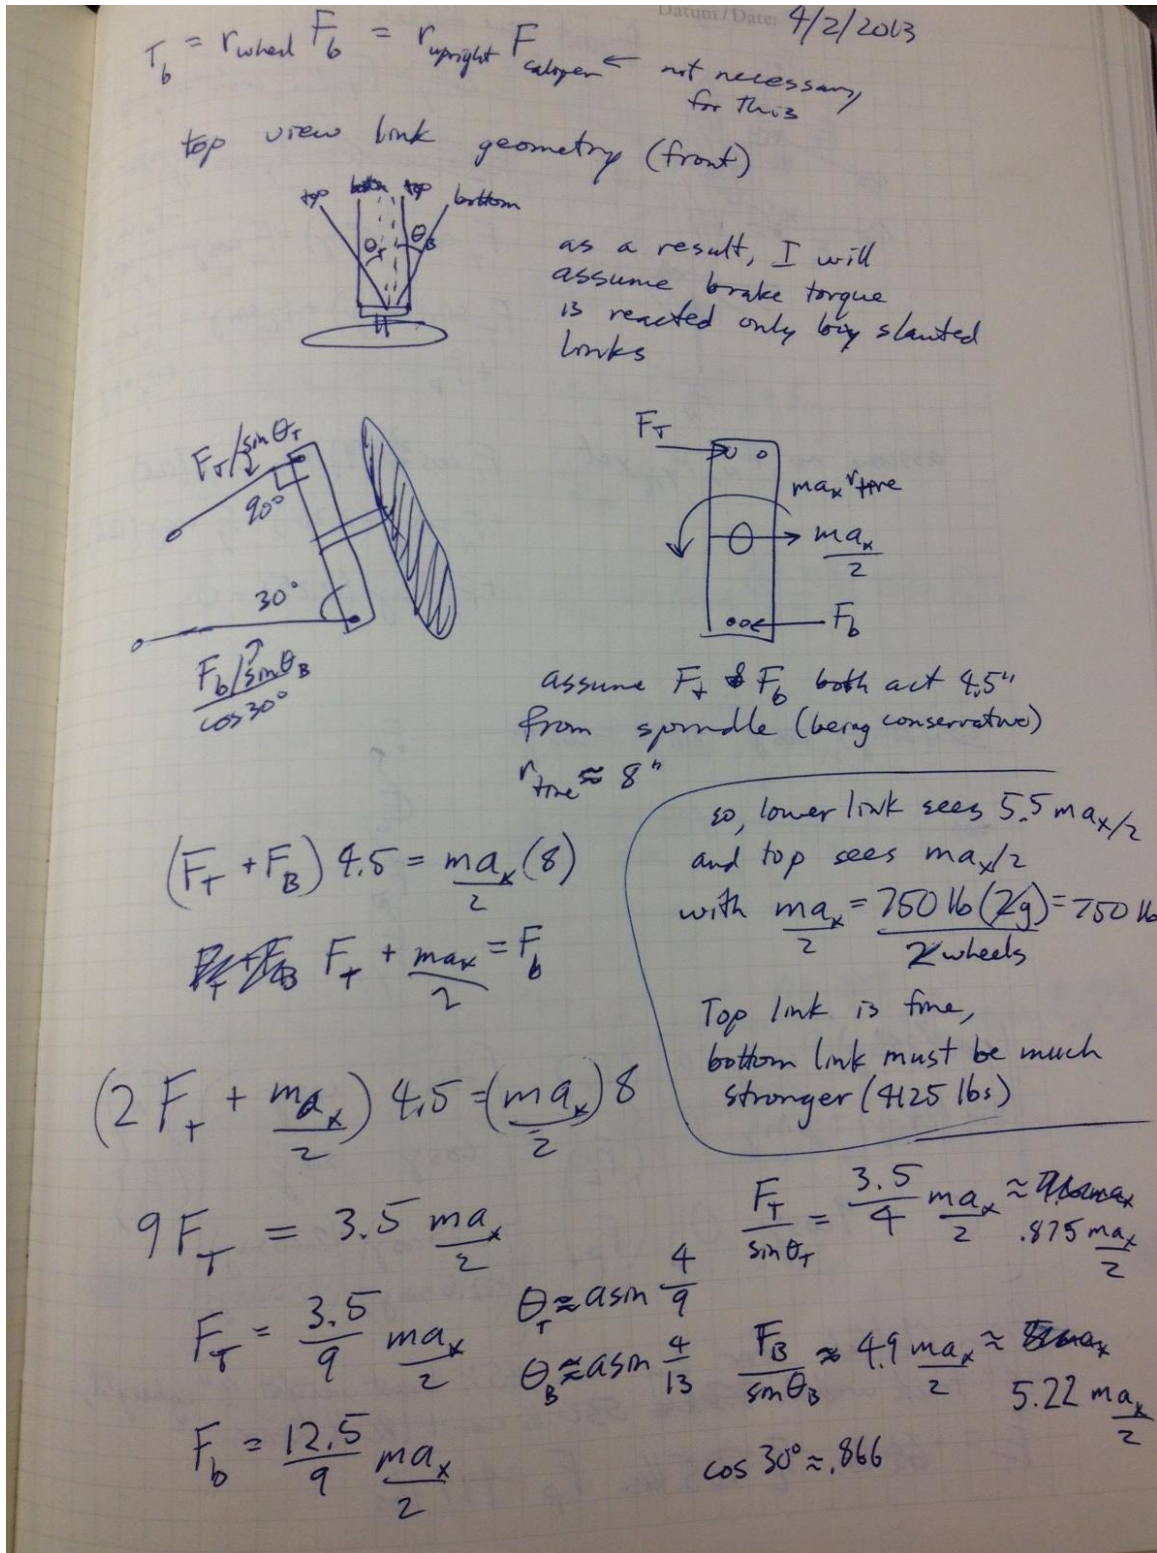 Datum / Date: 4/2/2013
T_b = r_wheel F_b = r_upright F_caliper ← not necessary
for this
top view link geometry (front)
top bottom top bottom
θ_T θ_B
as a result, I will
assume brake torque
is reacted only by slanted
links
F_T/sinθ_T
90°
30°
F_b/sinθ_B
cos30°
F_T
ma_x r_tire
ma_x/2
F_b
assume F_T & F_b both act 4.5"
from spindle (being conservative)
r_tire ≈ 8"
(F_T + F_B) 4.5 = ma_x/2 (8)
F_T + ma_x/2 = F_b
(2F_T + ma_x/2) 4.5 = (ma_x/2) 8
9F_T = 3.5 ma_x/2
F_T = 3.5/9 ma_x/2
F_b = 12.5/9 ma_x/2
so, lower link sees 5.5 ma_x/2
and top sees ma_x/2
with ma_x/2 = 750 lb (2g)/2 wheels = 750 lb
Top link is fine,
bottom link must be much
stronger (4125 lbs)
θ_T ≈ asin 4/9
θ_B ≈ asin 4/13
F_T/sinθ_T = 3.5/4 ma_x/2 ≈ .875 ma_x/2
F_B/sinθ_B ≈ 4.9 ma_x/2 ≈ 5.22 ma_x/2
cos 30° ≈ .866